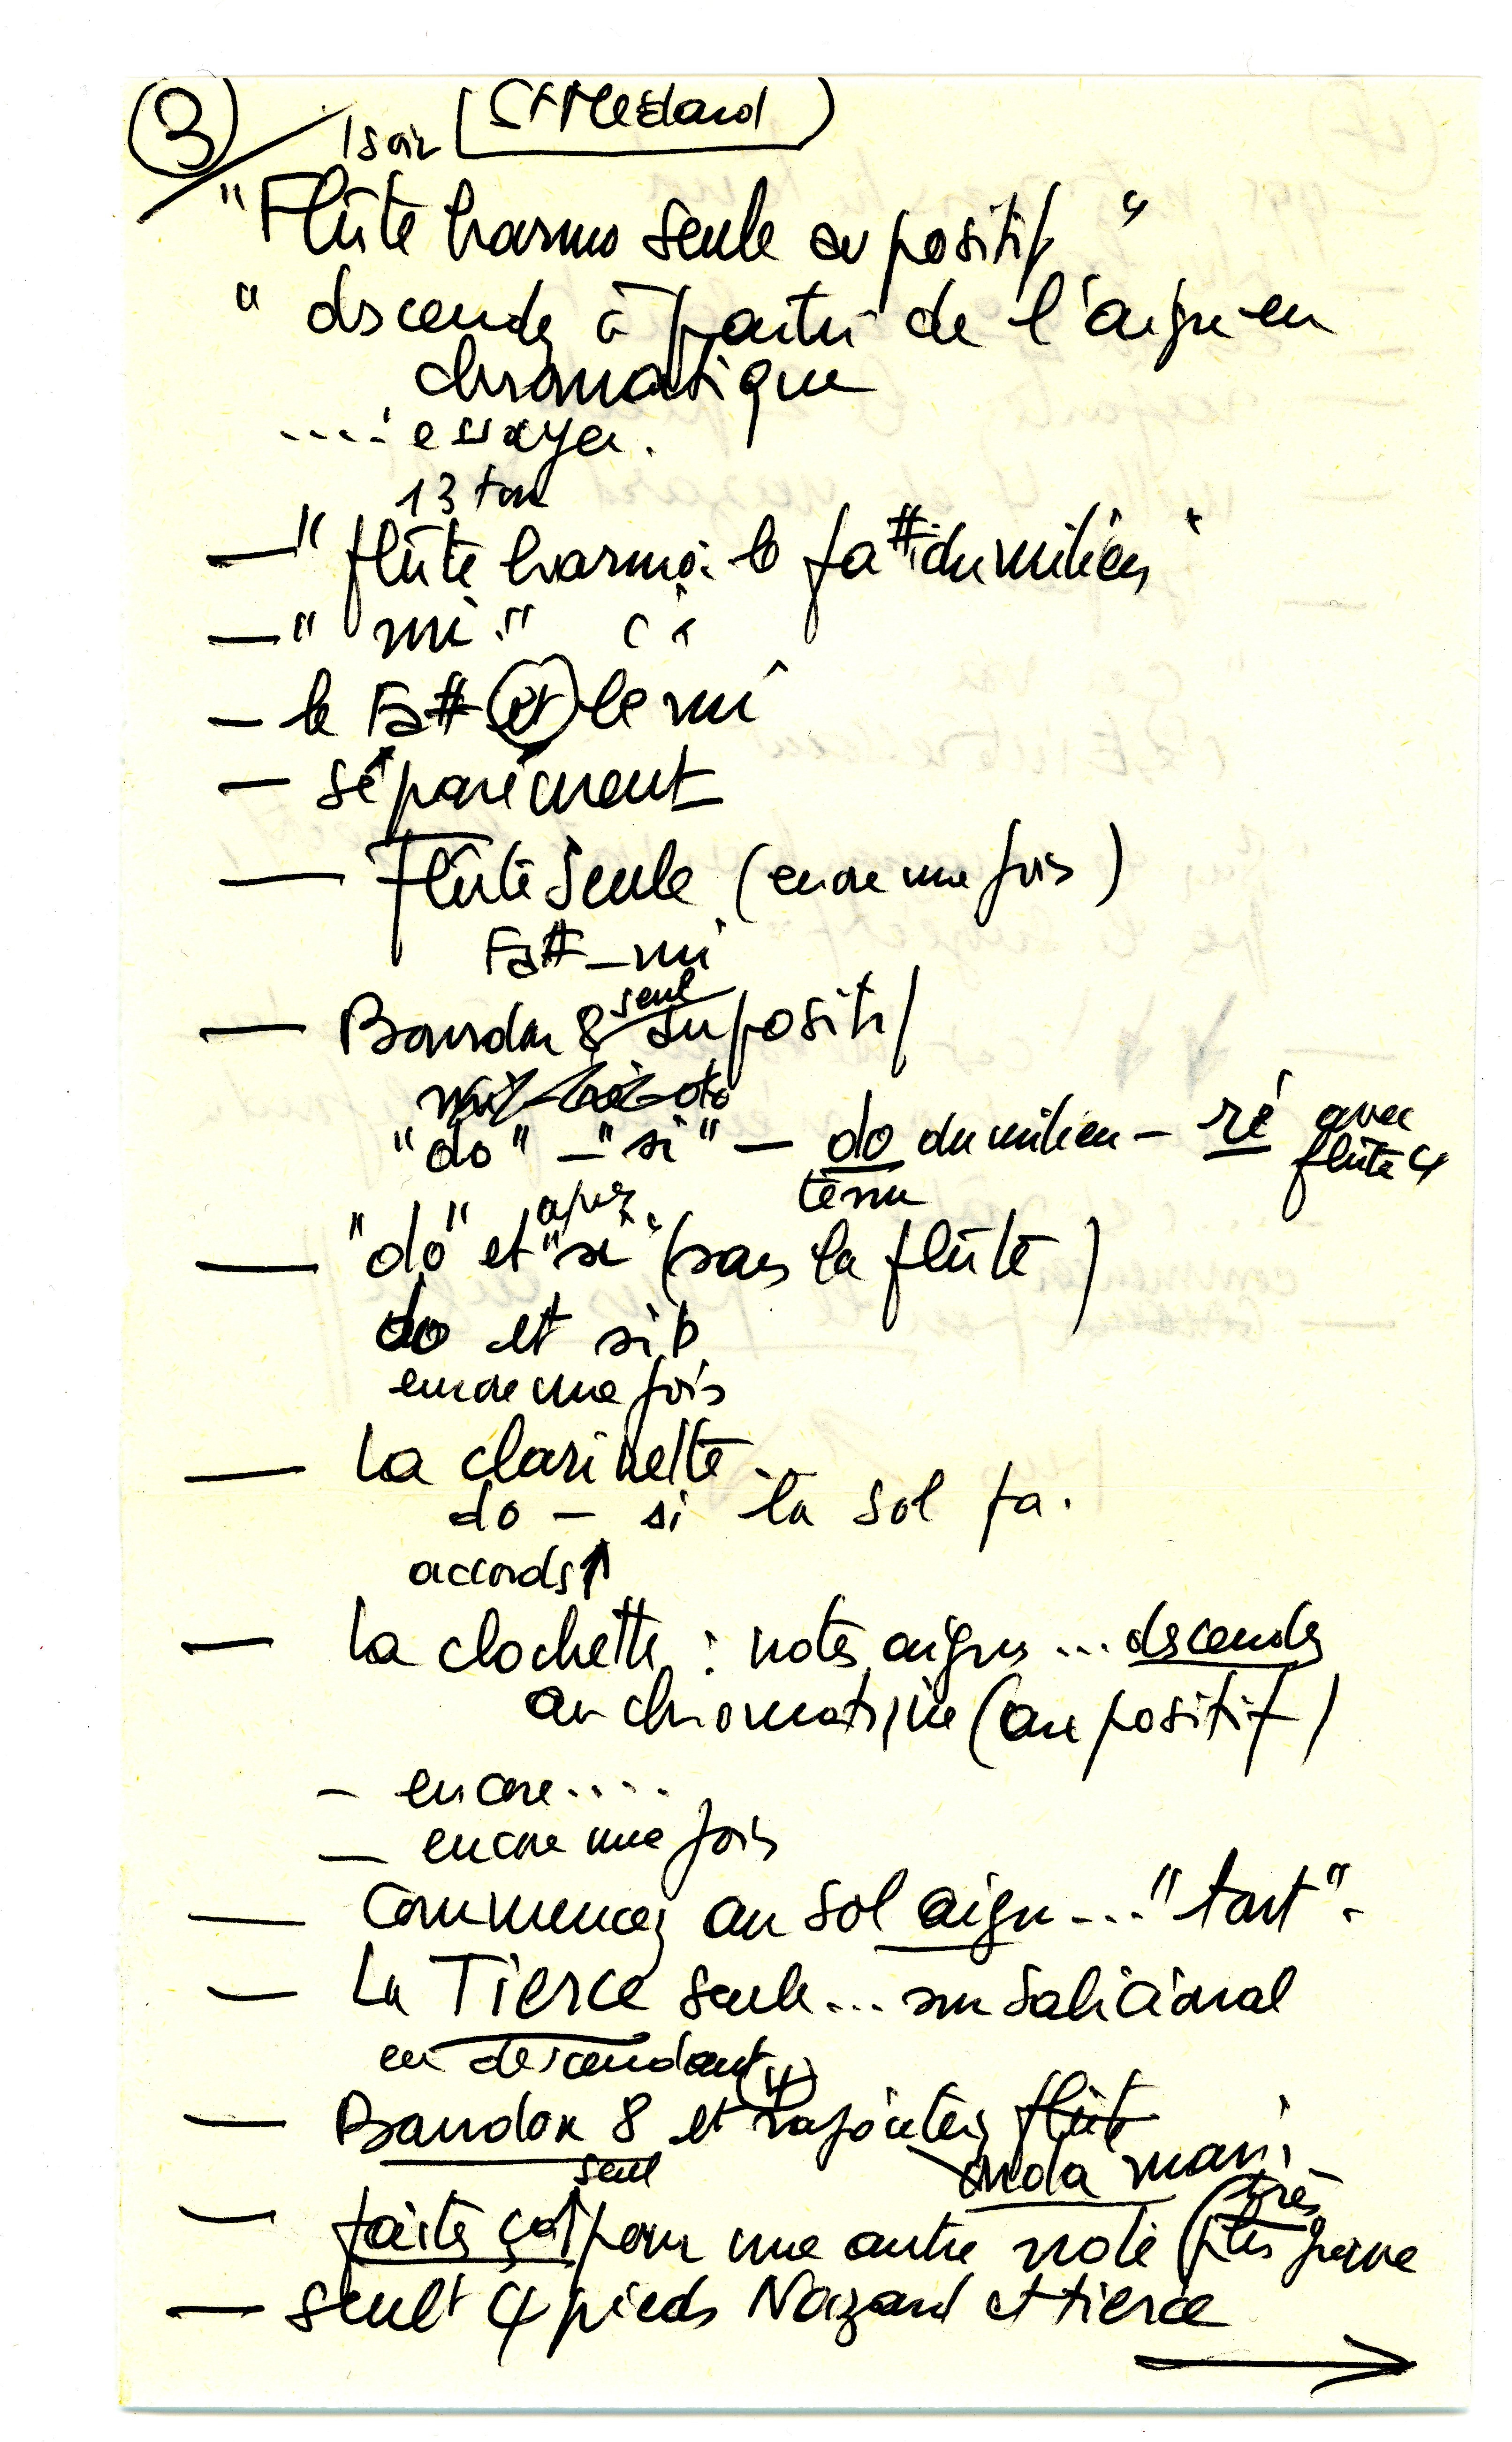 3 / Isoir (St Médard)
"Flûte harmo seule au positif"
"descendez à partir de l'aigu en
chromatique
....: essayer.
13 ton
— "flûte harmo: le fa# du milieu"
— "mi"
— le Fa# et le mi
— séparément
— Flûte seule (encore une fois)
Fa# – mi
— Bourdon 8 seul au positif
"do" – "si" – do du milieu – ré avec
tenu flûte 4
après
— "do" et "si" (sans la flûte)
do et si b
encore une fois
— la clarinette.
do – si la sol fa.
accords ↑
— la clochette : notes aigues ... descendez
en chromatique (au positif)
– encore....
— encore une fois
— Commencez au sol aigu... "tart".
— La Tierce seule... sur salicional
en descendant
— Bourdon 8 et rajoutez flûte
seul onda mari
— faites ça ↑ pour une autre note (très
plus grave
— seult 4 pieds Nazard et tierce
→